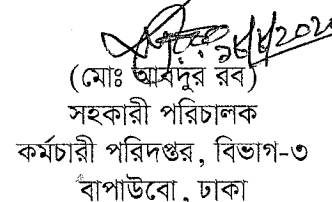 (মোঃ আবদুর রব)
সহকারী পরিচালক
কর্মচারী পরিদপ্তর, বিভাগ-৩
বাপাউবো, ঢাকা